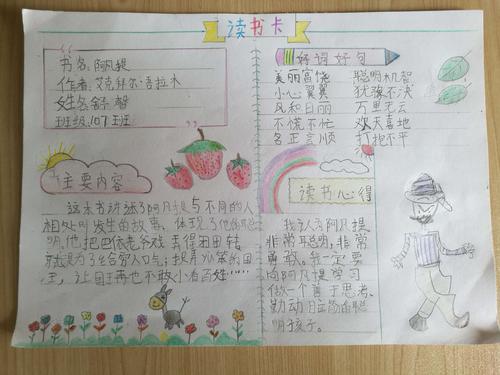 读书卡
书名:阿凡提
作者:艾克拜尔·吾拉木
姓名:舒馨
班级:107班
好词好句
美丽富饶 聪明机智
小心翼翼 犹豫不决
风和日丽 万里无云
不慌不忙 欢天喜地
名正言顺 打抱不平
主要内容
这本书讲述了阿凡提与不同的人
相处时发生的故事,体现了他的聪
明,他把巴依老爷戏弄得团团转
就是为了给穷人出气;捉弄
王,让国王再也不敢小看百姓……
读书心得
我认为阿凡提
非常聪明,非常
勇敢。我一定要
向阿凡提学习
做一个善于思考、
勤动脑筋的聪
明孩子。